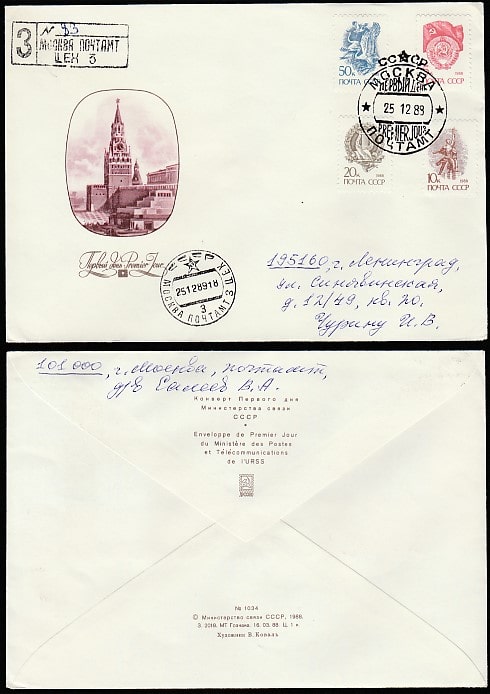 3
№ 93
МОСКВА ПОЧТАМТ
ЦЕХ 3
50к
ПОЧТА СССР
1988
ПОЧТА СССР
СССР
МОСКВА
ПЕРВЫЙ ДЕНЬ
25 12 89
PREMIER JOUR
ПОЧТАМТ
20к
1988
ПОЧТА СССР
10к
1988
ПОЧТА СССР
Первый день Premier Jour
МОСКВА ПОЧТАМТ ЦЕХ
25128918
3
195160, г. Ленинград,
ул. Синявинская,
д. 12/49, кв. 20,
Чурину И.В.
101000, г. Москва, почтамт,
д/в Евсеев В.А.
Конверт Первого дня
Министерства связи
СССР
•
Enveloppe de Premier Jour
du Ministère des Postes
et Télécommunications
de l'URSS
№ 1034
© Министерство связи СССР, 1988.
З. 2019. МТ Гознака. 16. 03. 88. Ц. 1 к.
Художник В. Коваль